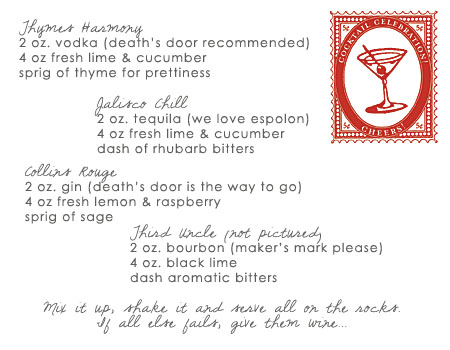 Thymes Harmony
2 oz. vodka (death's door recommended)
4 oz fresh lime & cucumber
sprig of thyme for prettiness
COCKTAIL CELEBRATION!
5¢ 5¢
CHEERS!
5¢ 5¢
Jalisco Chill
2 oz. tequila (we love espolon)
4 oz fresh lime & cucumber
dash of rhubarb bitters
Collins Rouge
2 oz. gin (death's door is the way to go)
4 oz fresh lemon & raspberry
sprig of sage
Third Uncle (not pictured)
2 oz. bourbon (maker's mark please)
4 oz. black lime
dash aromatic bitters
Mix it up, shake it and serve all on the rocks.
If all else fails, give them wine...